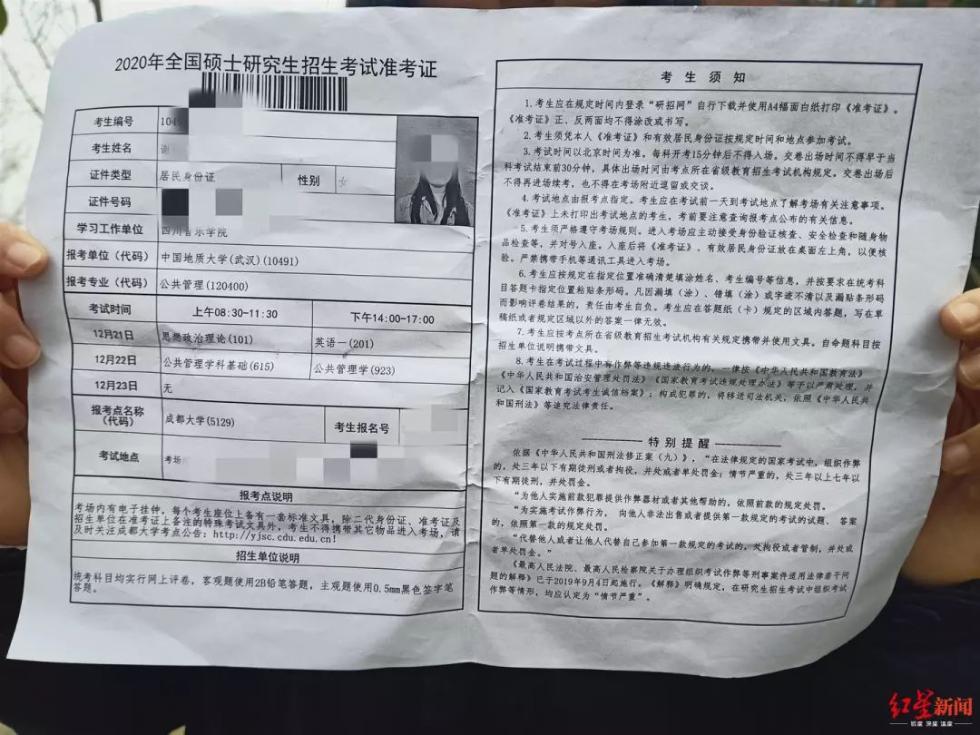 2020年全国硕士研究生招生考试准考证
考生编号 1049
考生姓名 谢
证件类型 居民身份证 性别 女
证件号码
学习工作单位 四川音乐学院
报考单位（代码） 中国地质大学(武汉)(10491)
报考专业（代码） 公共管理(120400)
考试时间 上午08:30-11:30 下午14:00-17:00
12月21日 思想政治理论(101) 英语一(201)
12月22日 公共管理学科基础(615) 公共管理学(923)
12月23日 无
报考点名称
（代码） 成都大学(5129) 考生报名号
考试地点 考场
报考点说明
考场内有电子挂钟，每个考生座位上备有一套标准文具，除二代身份证、准考证及
招生单位在准考证上备注的特殊考试文具外，考生不得携带其它物品进入考场，请
及时关注成都大学考点公告：http://yjsc.cdu.edu.cn!
招生单位说明
统考科目均实行网上评卷，客观题使用2B铅笔答题，主观题使用0.5mm黑色签字笔
答题。
考生须知
1.考生应在规定时间内登录“研招网”自行下载并使用A4幅面白纸打印《准考证》。
《准考证》正、反两面均不得涂改或书写。
2.考生须凭本人《准考证》和有效居民身份证按规定时间和地点参加考试。
3.考试时间以北京时间为准。每科开考15分钟后不得入场。交卷出场时间不得早于当
科考试结束前30分钟，具体出场时间由考点所在省级教育招生考试机构规定。交卷出场后
不得再进场续考，也不得在考场附近逗留或交谈。
4.考试地点由报考点指定。考生应在考试前一天到考试地点了解考场有关注意事项。
《准考证》上未打印出考试地点的考生，考前要注意查询报考点公布的有关信息。
5.考生须严格遵守考场规则。进入考场应主动接受身份验证核查、安全检查和随身物
品检查等，并对号入座。入座后将《准考证》、有效居民身份证放在桌面左上角，以便核
验。严禁携带手机等通讯工具进入考场。
6.考生应按规定在指定位置准确清楚填涂姓名、考生编号等信息，并按要求在统考科
目答题卡指定位置粘贴条形码。凡因漏填（涂）、错填（涂）或字迹不清以及漏贴条形码
而影响评卷结果的，责任由考生自负。考生应在答题纸（卡）规定的区域内答题，写在草
稿纸或者规定区域以外的答案一律无效。
7.考生应按考点所在省级教育招生考试机构有关规定携带并使用文具。自命题科目按
招生单位说明携带文具。
8.考生在考试过程中有作弊等违规违法行为的，一律按《中华人民共和国教育法》
《中华人民共和国治安管理处罚法》《国家教育考试违规处理办法》等予以严肃处理，并
记入《国家教育考试考生诚信档案》；构成犯罪的，将移送司法机关，依照《中华人民共
和国刑法》等追究法律责任。
特别提醒
依据《中华人民共和国刑法修正案（九）》，“在法律规定的国家考试中，组织作弊
的，处三年以下有期徒刑或者拘役，并处或者单处罚金；情节严重的，处三年以上七年以
下有期徒刑，并处罚金。
“为他人实施前款犯罪提供作弊器材或者其他帮助的，依照前款的规定处罚。
“为实施考试作弊行为，向他人非法出售或者提供第一款规定的考试的试题、答案
的，依照第一款的规定处罚。
“代替他人或者让他人代替自己参加第一款规定的考试的，处拘役或者管制，并处或
者单处罚金。”
《最高人民法院、最高人民检察院关于办理组织考试作弊等刑事案件适用法律若干问
题的解释》已于2019年9月4日起施行。《解释》明确规定，在研究生招生考试中组织考试
作弊等情形，均应认定为“情节严重”。
红星新闻